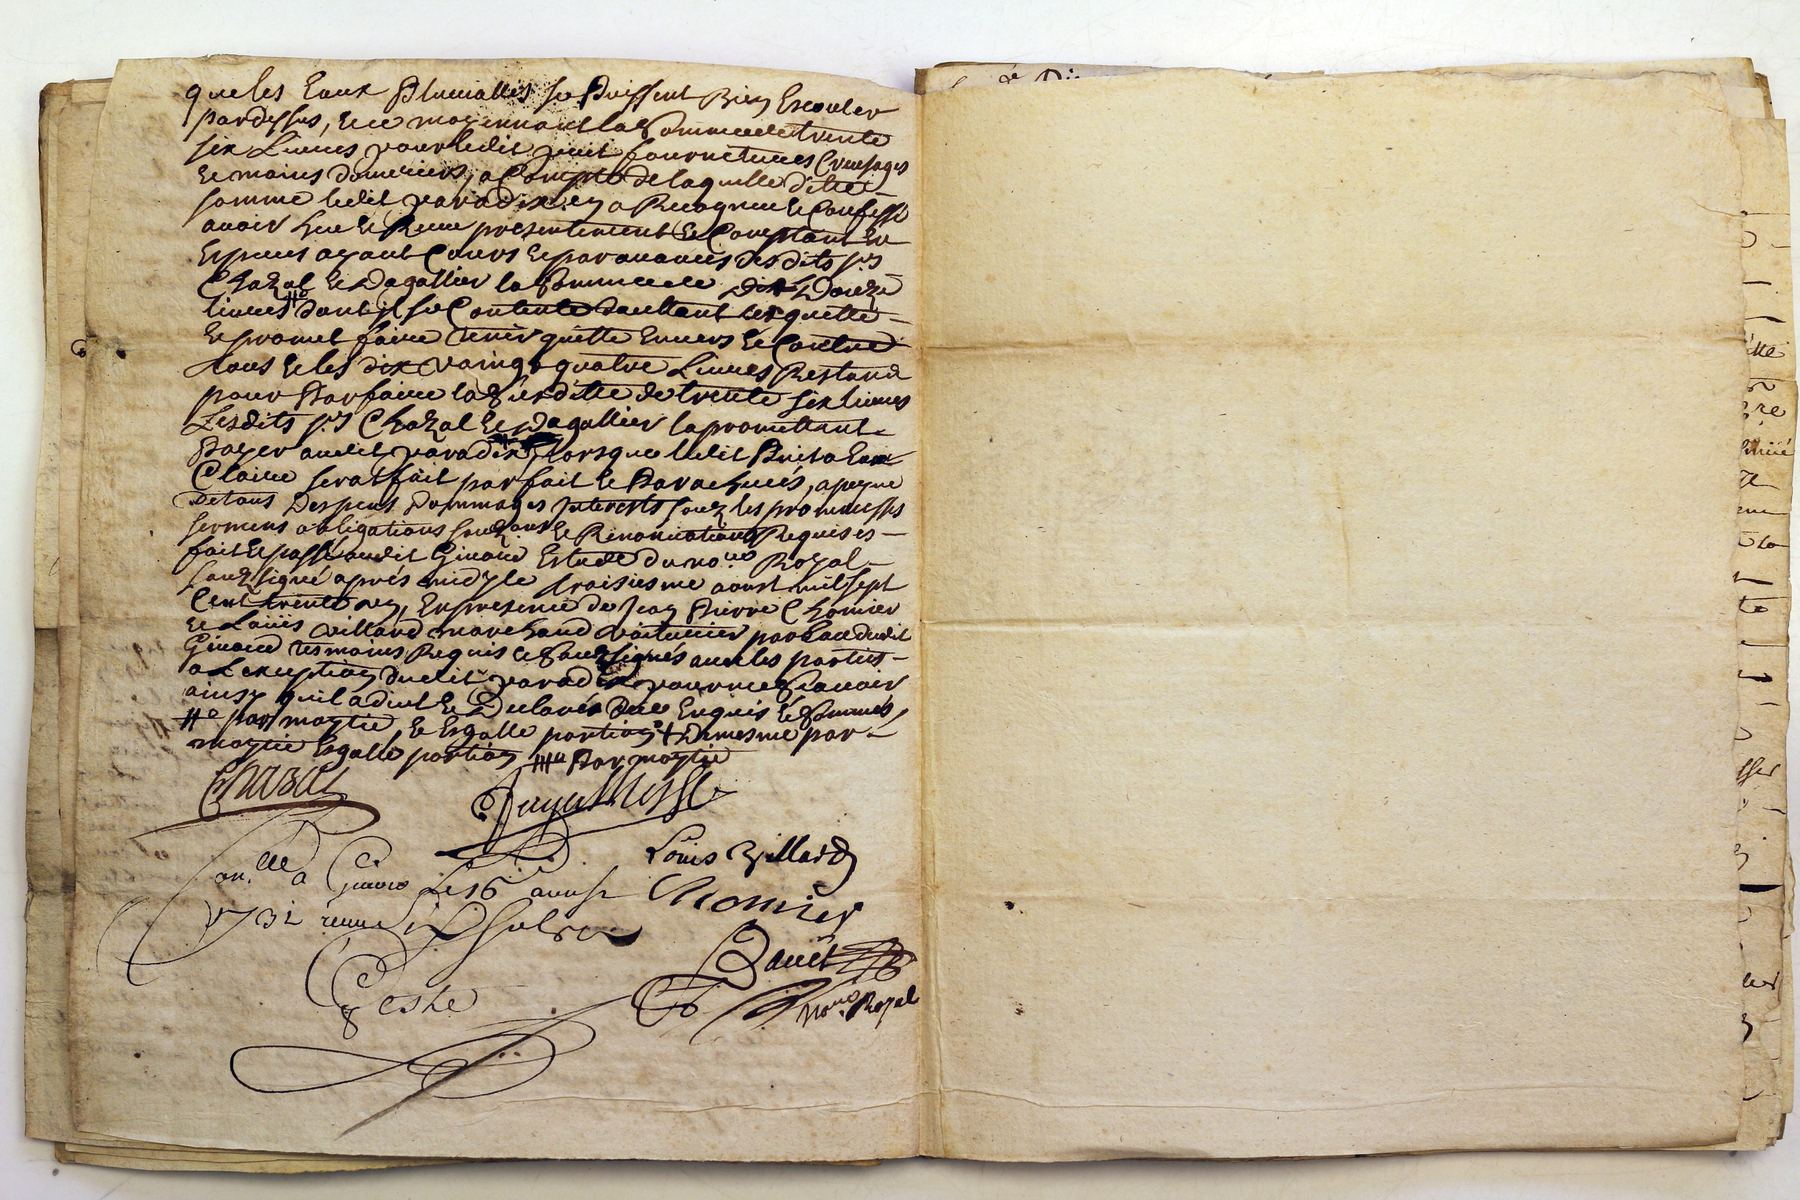 que les Eaux Pluuialles se Puissent Bien Escouler
pardessus, Et ce moyennant la Somme de trente
six Liures pour ledit puit fournitures Creusages
Et mains d'ouuriers, a Compte de laquelle ditte
somme ledit paradis en a Recogneu Et Confessé
auoir heu Et Receu presentement Et Comptant En
Especes ayant Cours Et par auances desdits srs
Chazal Et Dagallier la Somme de Douze
liures #a dont il se Contente daultant les quitte
Et promet faire tenir quitte Enuers Et Contre
tous Et les vaingt quatre Liures Restant
pour Parfaire la susditte de trente six liures
Lesdits srs Chazal Et Dagallier la promettant
Payer audit paradis lorsque ledit Puit a Eau
Claire serat fait parfait Et Paracheué, a peyne
De tous Despens Dommages Interests soubz les promesses
sermens obligations soubz Et Renonciations Requises
fait Et passé audit Giuord Estude du nore Royal
soubzsigné aprés midy le troisiesme aoust mil sept
Cent trente En presence de Jean Pierre Chomier
Et Louis Villard marchand voiturier par Eau dudit
Giuord tesmoins Requis Et Soubzsignés auec les parties
a L'exception dudit paradis pour ne Scauoir
ainsy quil a dict Et Declaré De ce Enquis Et Sommés,
#a par moytié Et Esgalle portion + De mesme par
moytié Esgalle portion ##a Par moytié
Chazal
Louis Villard
Chomier
a Giuors Le 6 aoust
1731 receu
nore Royal